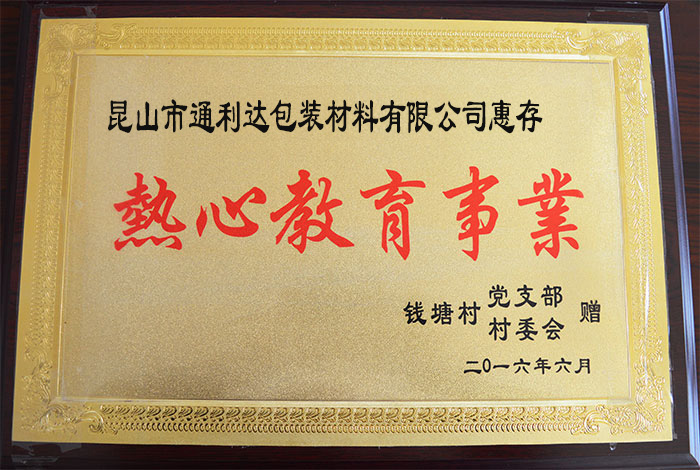 昆山市通利达包装材料有限公司惠存
熱心教育事業
钱塘村党支部村委会赠
二0一六年六月